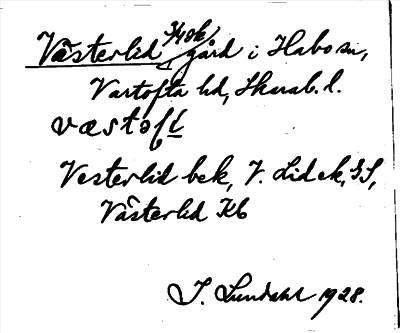 Västerlid 3/4 ek, gård i Habo sn,
Vartofta hd, Skarab. l.
Vesterlid bek, V. Lid ek, GS,
Västerlid Kb
I. Lundahl 1928.